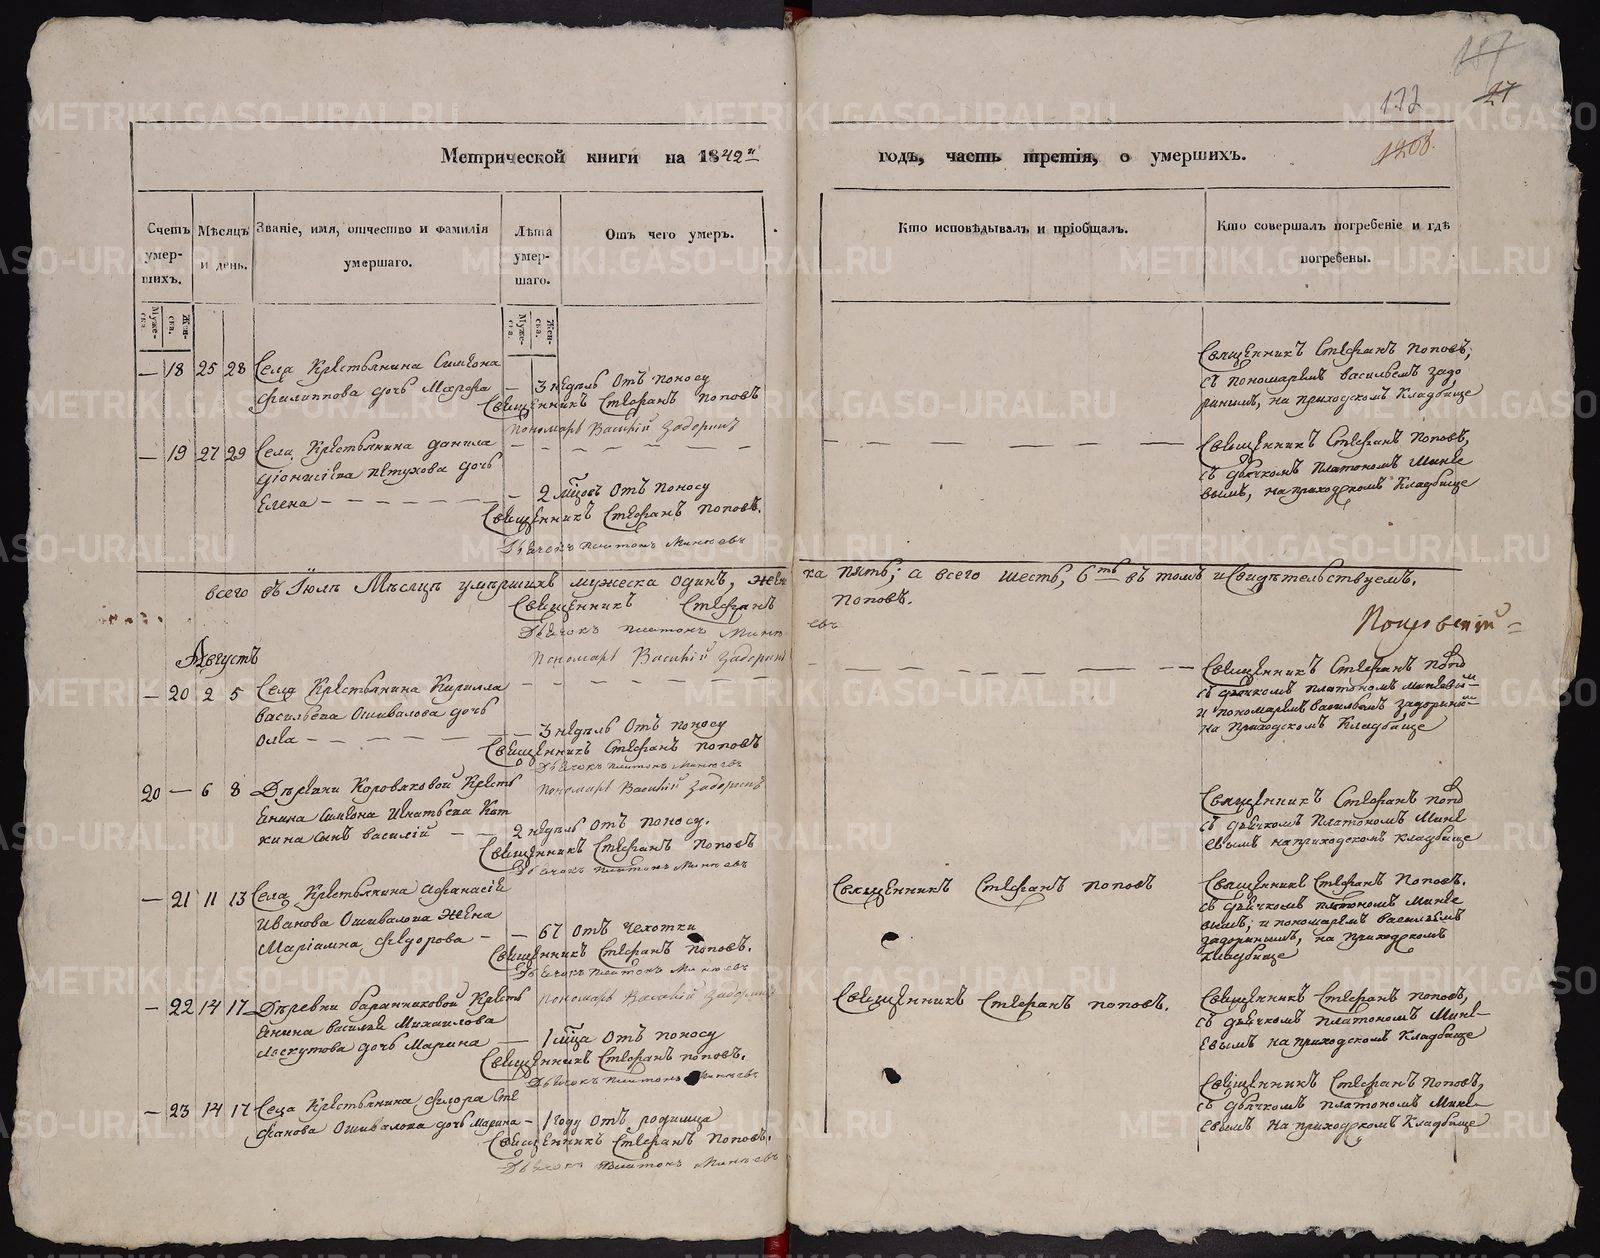 187
27
177
1208.
Метрической книги на 1842й
годъ, часть третія, о умершихъ.
Счетъ умер-шихъ.
Мѣсяцъ и день.
Званіе, имя, отчество и фамилія умершаго.
Лѣта умер-шаго.
Отъ чего умеръ.
Кто исповѣдывалъ и пріобщалъ.
Кто совершалъ погребеніе и гдѣ погребены.
Муже-ска.
Жен-ска.
Муже-ска.
Жен-ска.
— 18 25 28 Села Крестьянина Симеона
Филиппова дочь Марфа — 3 недѣль Отъ поносу
Священникъ Стефанъ Поповъ
Пономарь Василій Задоринъ
Священникъ Стефанъ Поповъ,
съ пономаремъ васильемъ задо
ринымъ, на приходскомъ Кладбище
— 19 27 29 Села Крестьянина данила
діонисіева петухова дочь
Елена — 2 мѣсяцовъ Отъ поносу
Священникъ Стефанъ Поповъ.
Дьячокъ Платонъ Минѣевъ
Священникъ Стефанъ Поповъ,
съ дьячкомъ Платономъ Мине
вымъ, на приходскомъ Кладбище
всего въ Іюлѣ Мѣсяцѣ умершихъ мужеска одинъ, женска пять; а всего шесть, въ томъ и свидѣтельствуемъ.
Священникъ Стефанъ Поповъ.
Дьячокъ Платонъ Минѣевъ
Пономарь Василій Задоринъ
Августъ
— 20 2 5 Села Крестьянина Кирилла
васильева Ошивалова дочь
Олга — 3 недѣль Отъ поносу
Священникъ Стефанъ Поповъ
Дьячокъ Платонъ Минѣевъ
Пономарь Василій Задоринъ
Священникъ Стефанъ Попо
съ дьячкомъ платономъ минѣевым
и пономаремъ васильемъ задорины
на приходскомъ Кладбище
20 — 6 8 Деревни Коровяковой Кресть
янина Симеона Игнатьева Кот
кина сынъ василій — 2 недѣль Отъ поносу.
Священникъ Стефанъ Поповъ
Дьячокъ Платонъ Минѣевъ
Священникъ Стефанъ Попо
съ дьячкомъ Платономъ Мине
евымъ на приходскомъ кладбище
— 21 11 13 Села Крестьянина Афанасія
Иванова Ошивалова жена
Маріамна Федорова — 67 Отъ Чехотки
Священникъ Стефанъ Поповъ.
Дьячокъ Платонъ Минѣевъ
Пономарь Василій Задоринъ
Священникъ Стефанъ Поповъ
Священникъ Стефанъ Поповъ.
съ дьячкомъ платономъ Мине
вымъ; и пономаремъ васильемъ
задоринымъ, на приходскомъ
кладбище
— 22 14 17 Деревни баранниковой Кресть
янина василья Михаилова
Лоскутова дочь Марина — 1 мѣсяца Отъ поносу
Священникъ Стефанъ Поповъ.
Дьячокъ Платонъ Минѣевъ
Священникъ Стефанъ Поповъ.
Священникъ Стефанъ Поповъ,
съ дьячкомъ Платономъ Мине-
евымъ на приходскомъ Кладбище
— 23 14 17 Села Крестьянина Флора Сте
фанова Ошивалова дочь Марина — 1 году Отъ родимца
Священникъ Стефанъ Поповъ.
Дьячокъ Платонъ Минѣевъ
Священникъ Стефанъ Поповъ,
съ дьячкомъ платономъ Мине
евымъ на приходскомъ Кладбище
METRIKI.GASO-URAL.RU